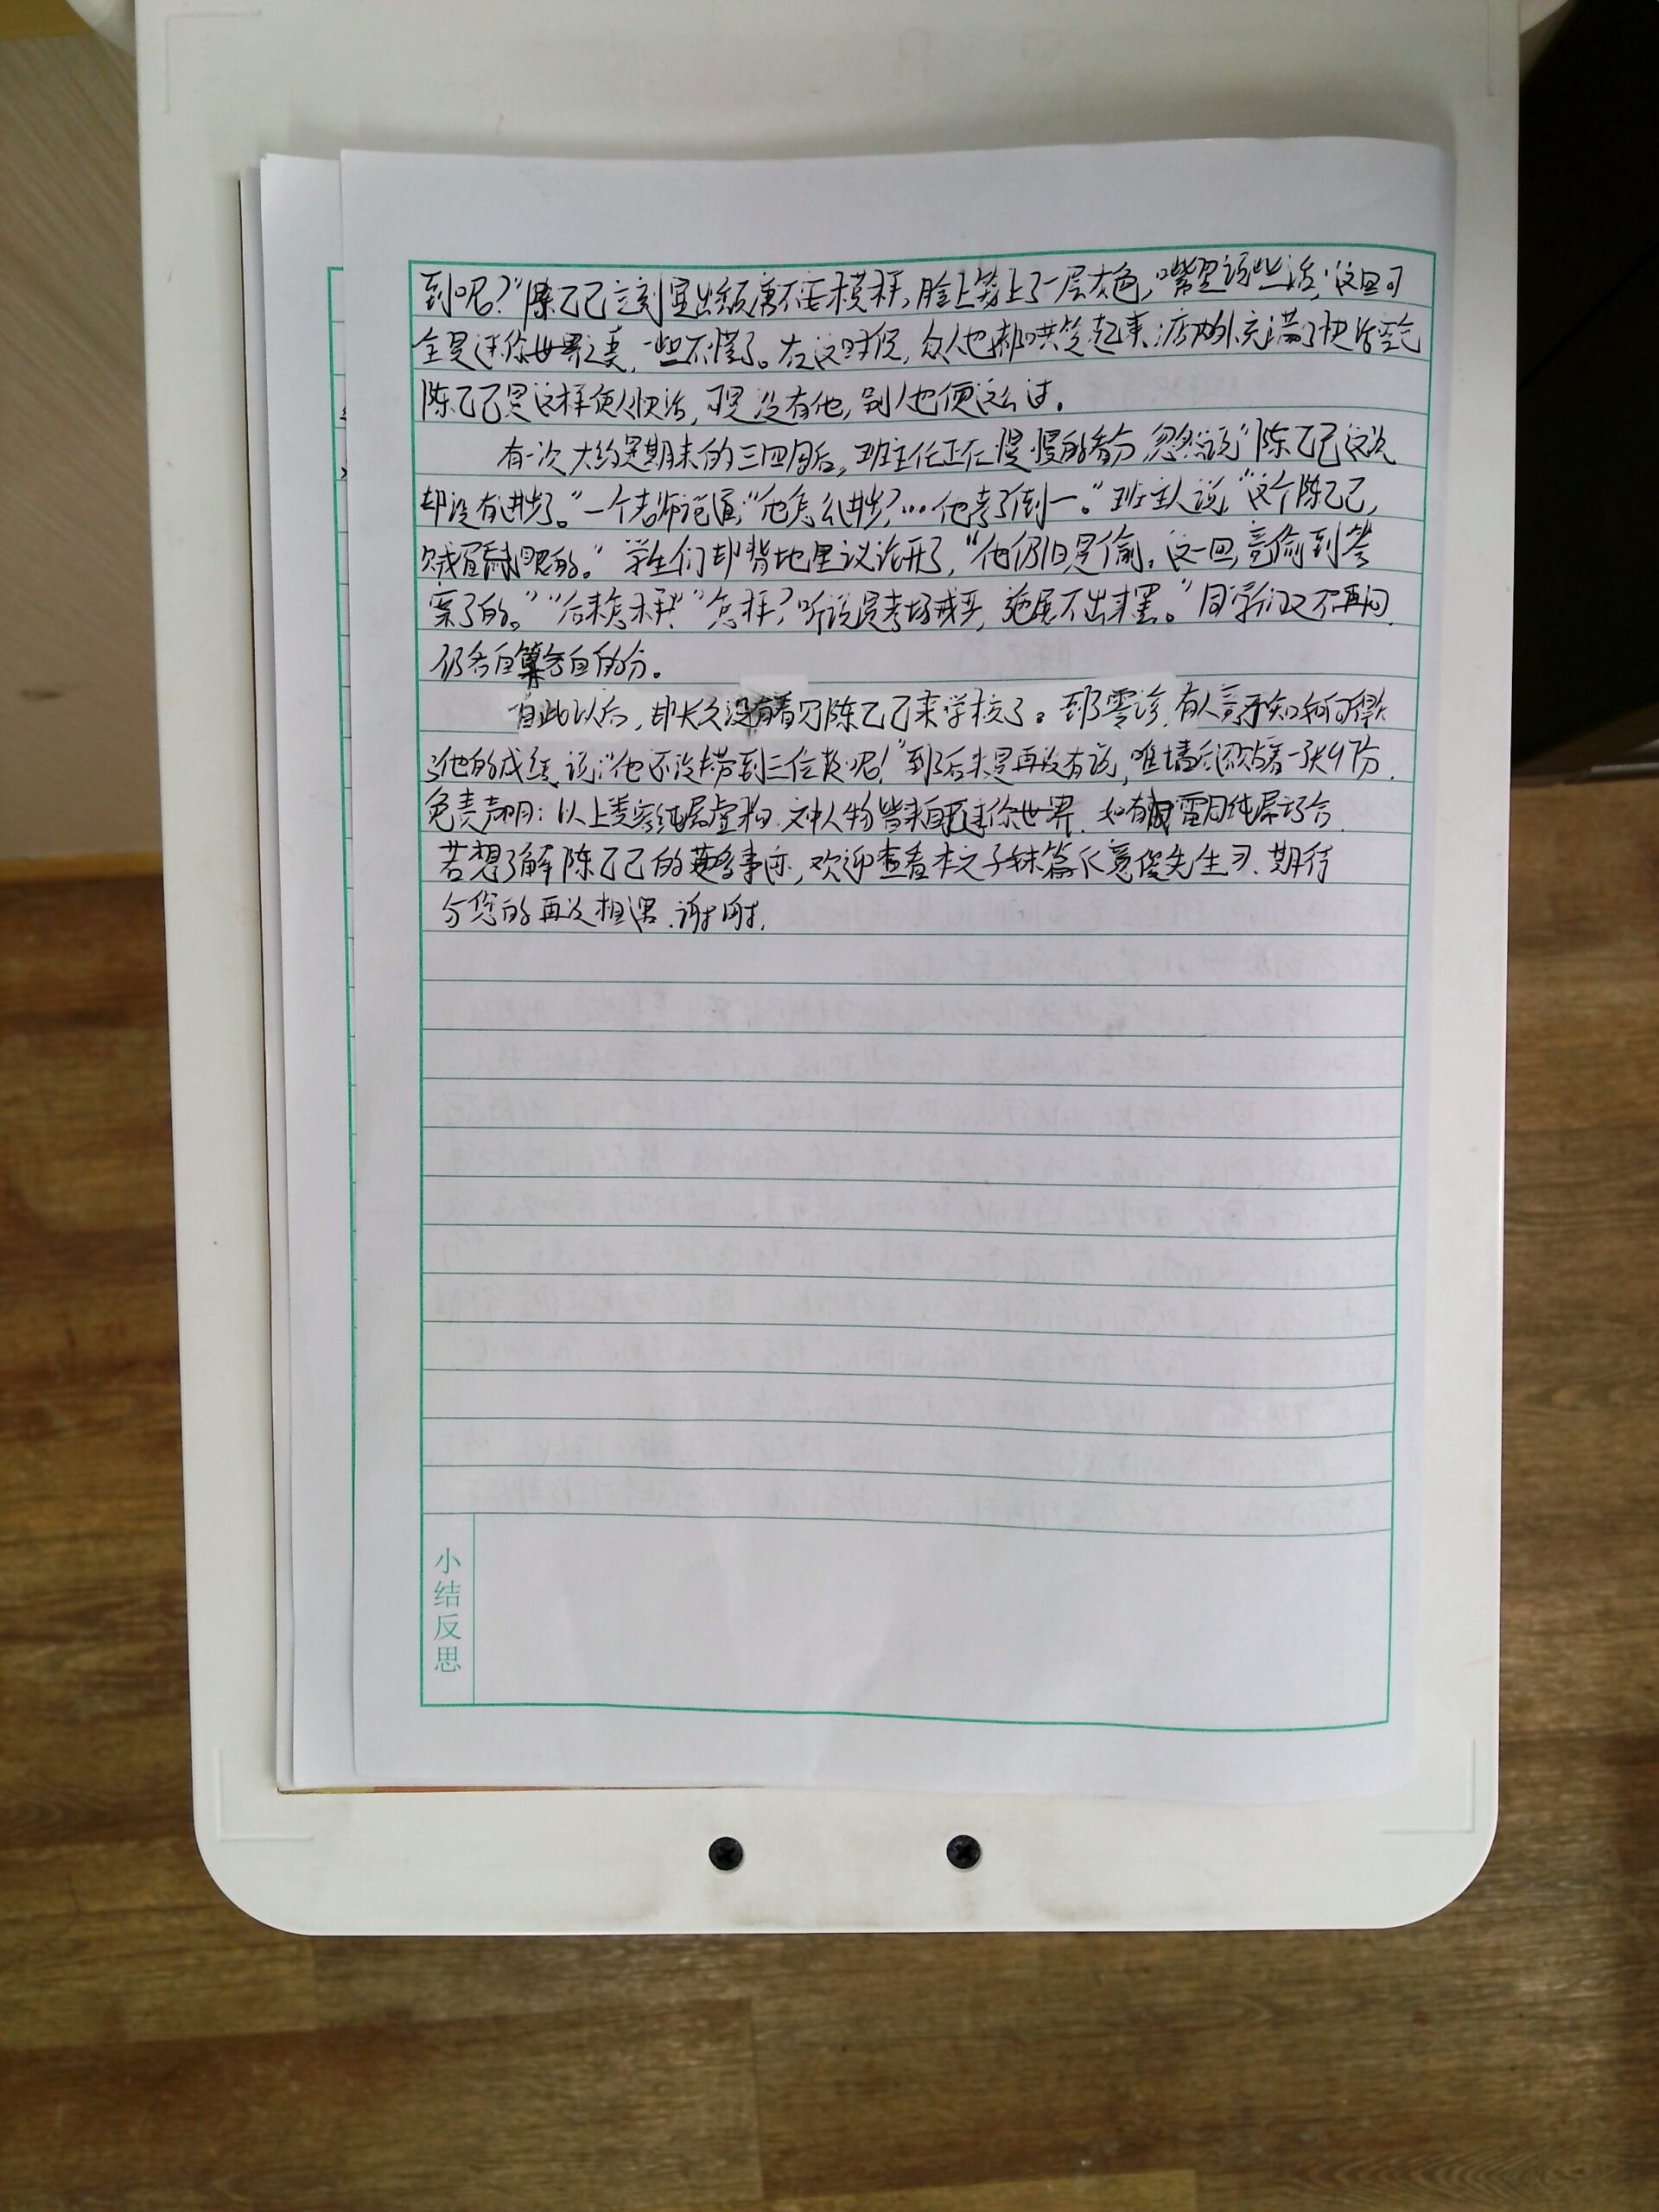 到呢？”陈乙己立刻显出颓唐不安模样，脸上笼上了一层灰色，嘴里说些话；这回可
全是迷你世界之类，一些不懂了。在这时候，众人也都哄笑起来：店内外充满了快活空气
陈乙己是这样使人快活，可是没有他，别人也便这么过。
有一次大约是期末的三四周后，班主任正在慢慢的看分，忽然说“陈乙己这次
却没有进步了。”一个老师说道，“他怎么进步？…他考了倒一。”班主人说，“这个陈乙己，
的。”学生们却背地里议论开了，“他仍旧是偷。这一回，竟偷到答
案了的。”“后来怎样？”“怎样？听说是考场戒严，施展不出来罢。”同学们又不再问，
仍各自算各自的分。
自此以后，却长久没有看见陈乙己来学校了。到了零诊，有人竟不知如何得知
了他的成绩，说“他还没考到三位数呢！”到了后来是再没有说，唯墙上贴着一张97分
免责声明：以上类容纯属虚构，文中人物皆来自迷你世界，如有雷同纯属巧合
若想了解陈乙己的更多事迹，欢迎查看本文子妹篇《先生》，期待
与您的再次相遇，谢谢，
小结反思